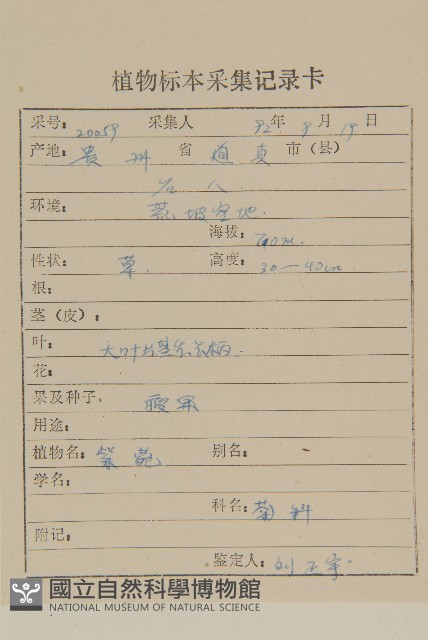 植物标本采集记录卡
采号: 20059 采集人 92年 9月 19日
产地: 贵州省 道真市(县)
石人
环境: 荒坡空地.
海拔: m.
性状: 草. 高度: 30—40cm
根:
茎(皮):
叶: 大叶片基生,有柄.
花:
果及种子, 瘦果
用途:
植物名: 紫菀 别名:
学名:
科名: 菊科
附记:
鉴定人: 刘正宇.
國立自然科學博物館
NATIONAL MUSEUM OF NATURAL SCIENCE